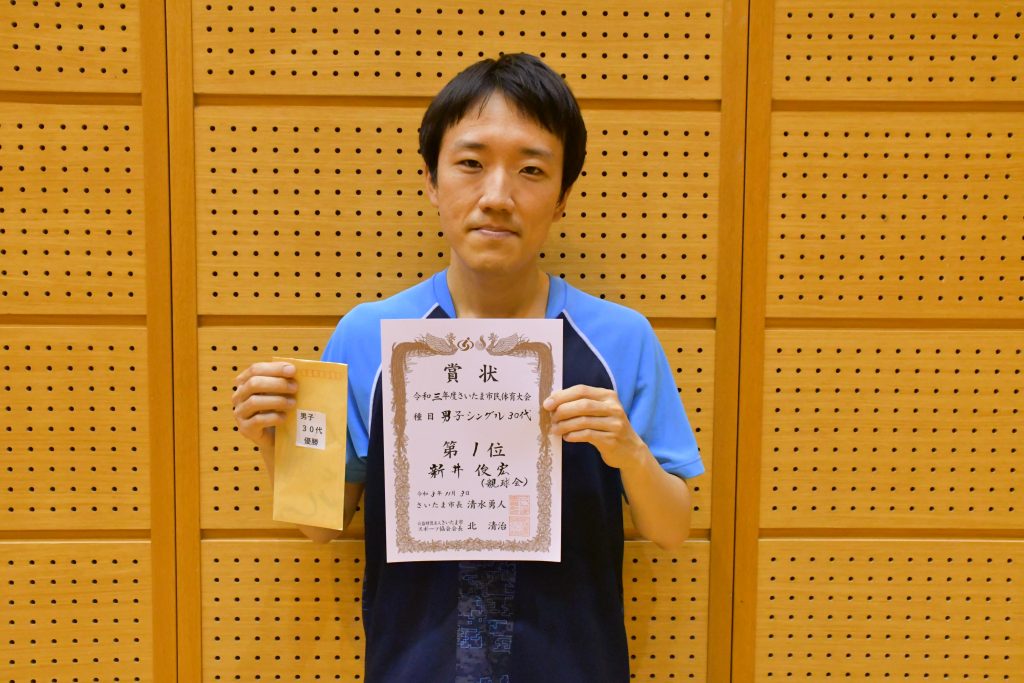 男子
30代
優勝
賞状
令和三年度さいたま市民体育大会
種目 男子シングル30代
第1位
新井俊宏
(親球会)
令和3年11月3日
さいたま市長 清水勇人
公益財団法人さいたま市
スポーツ協会会長 北 清治